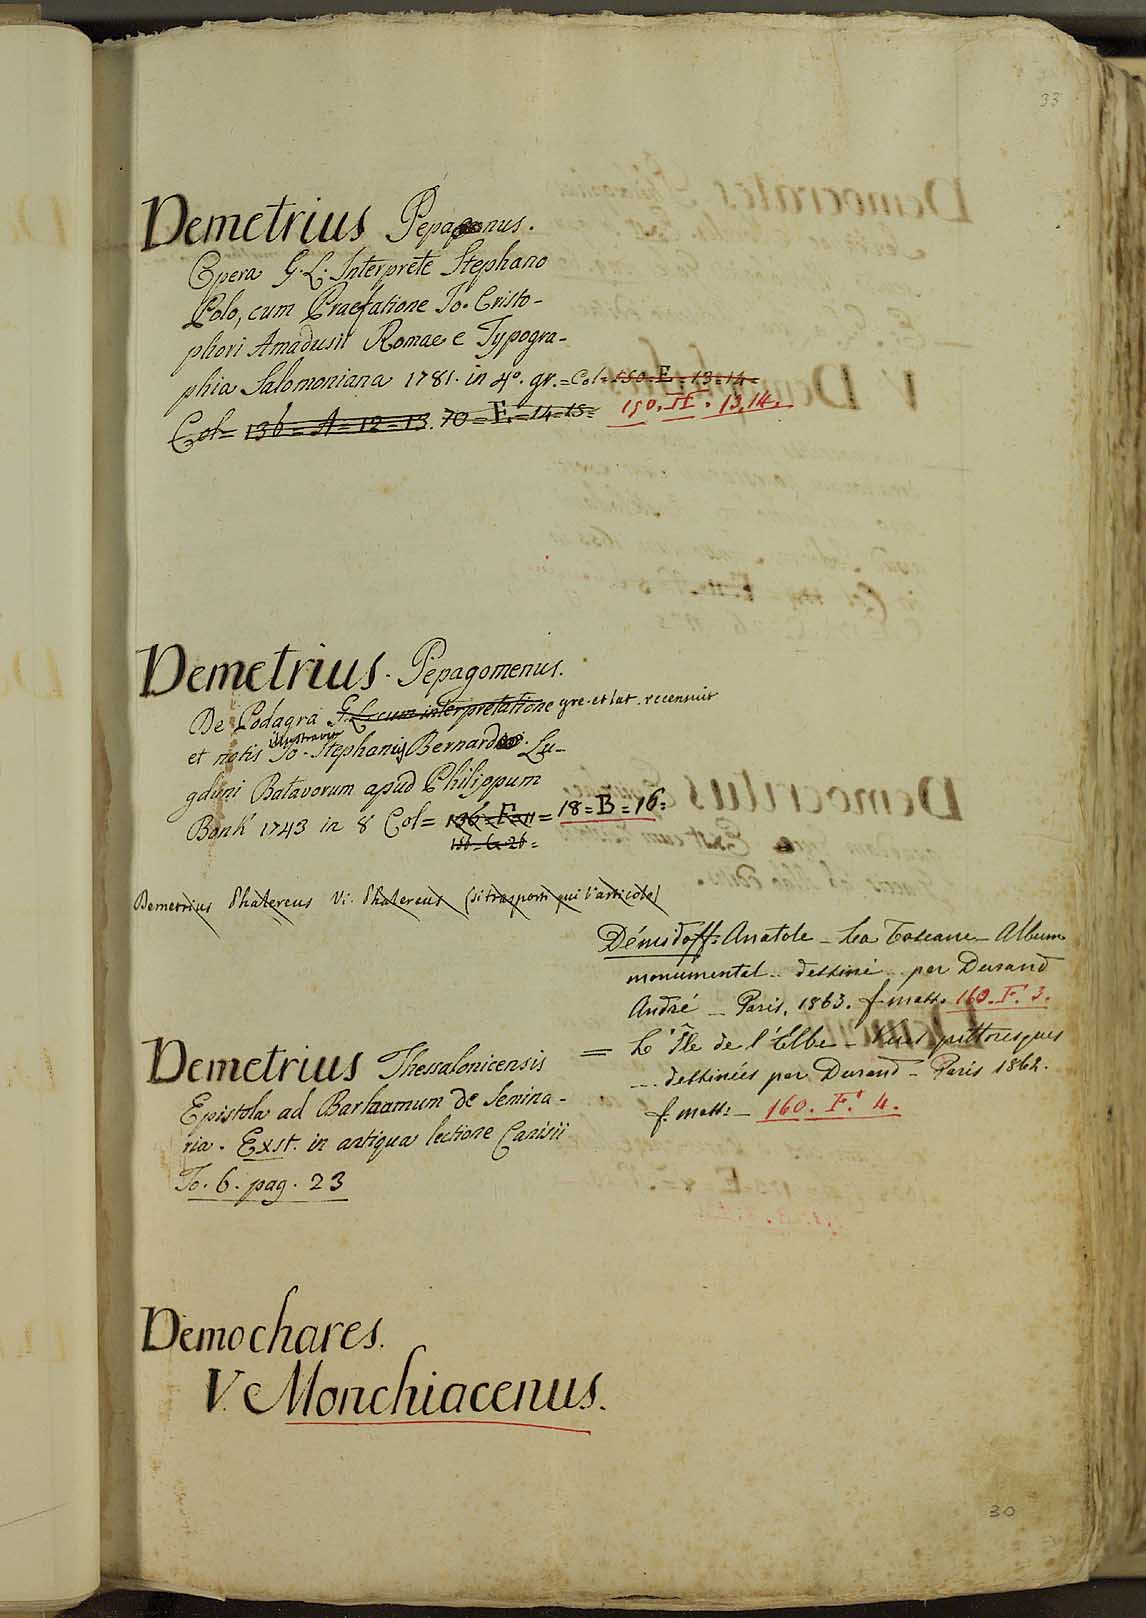 33
Demetrius Pepagonus.
Opera G. L. Interprete Stephano
Polo, cum Praefatione Jo. Cristo-
phori Amadusii Romae e Typogra-
phia Salomoniana 1781. in 4º. gr. = Col = 150 = E = 13 = 14 =
Col = 136 = A = 12 = 13. 70 = F. = 14 = 15 = 150. H. 13, 14.
Demetrius. Pepagomenus.
De Podagra G. L. cum interpretatione gre. et lat. recensuit
et notis illustravit Jo. Stephanus Bernard Lu-
gduni Batavorum apud Philippum
Bonk 1743 in 8 Col = 136 = F = 11 = 18 = B = 16 =
136 = G = 26 =
Demetrius Phalereus V. Phalereus (si trasporti qui l'articolo)
Démidoff: Anatole _ La Toscane _ Album
monumental .. dessiné .. par Durand
André _ Paris, 1863. f. mass. 160. F. 3.
= L'Île de l'Elbe _ Vues pittoresques
_ .. dessinées par Durand _ Paris 1862.
f. mass: _ 160. F. 4.
Demetrius Thessalonicensis
Epistola ad Barlaamum de Semina-
ria. Exst. in antiqua lectione Canisii
To. 6. pag. 23
Demochares.
V. Monchiacenus.
30